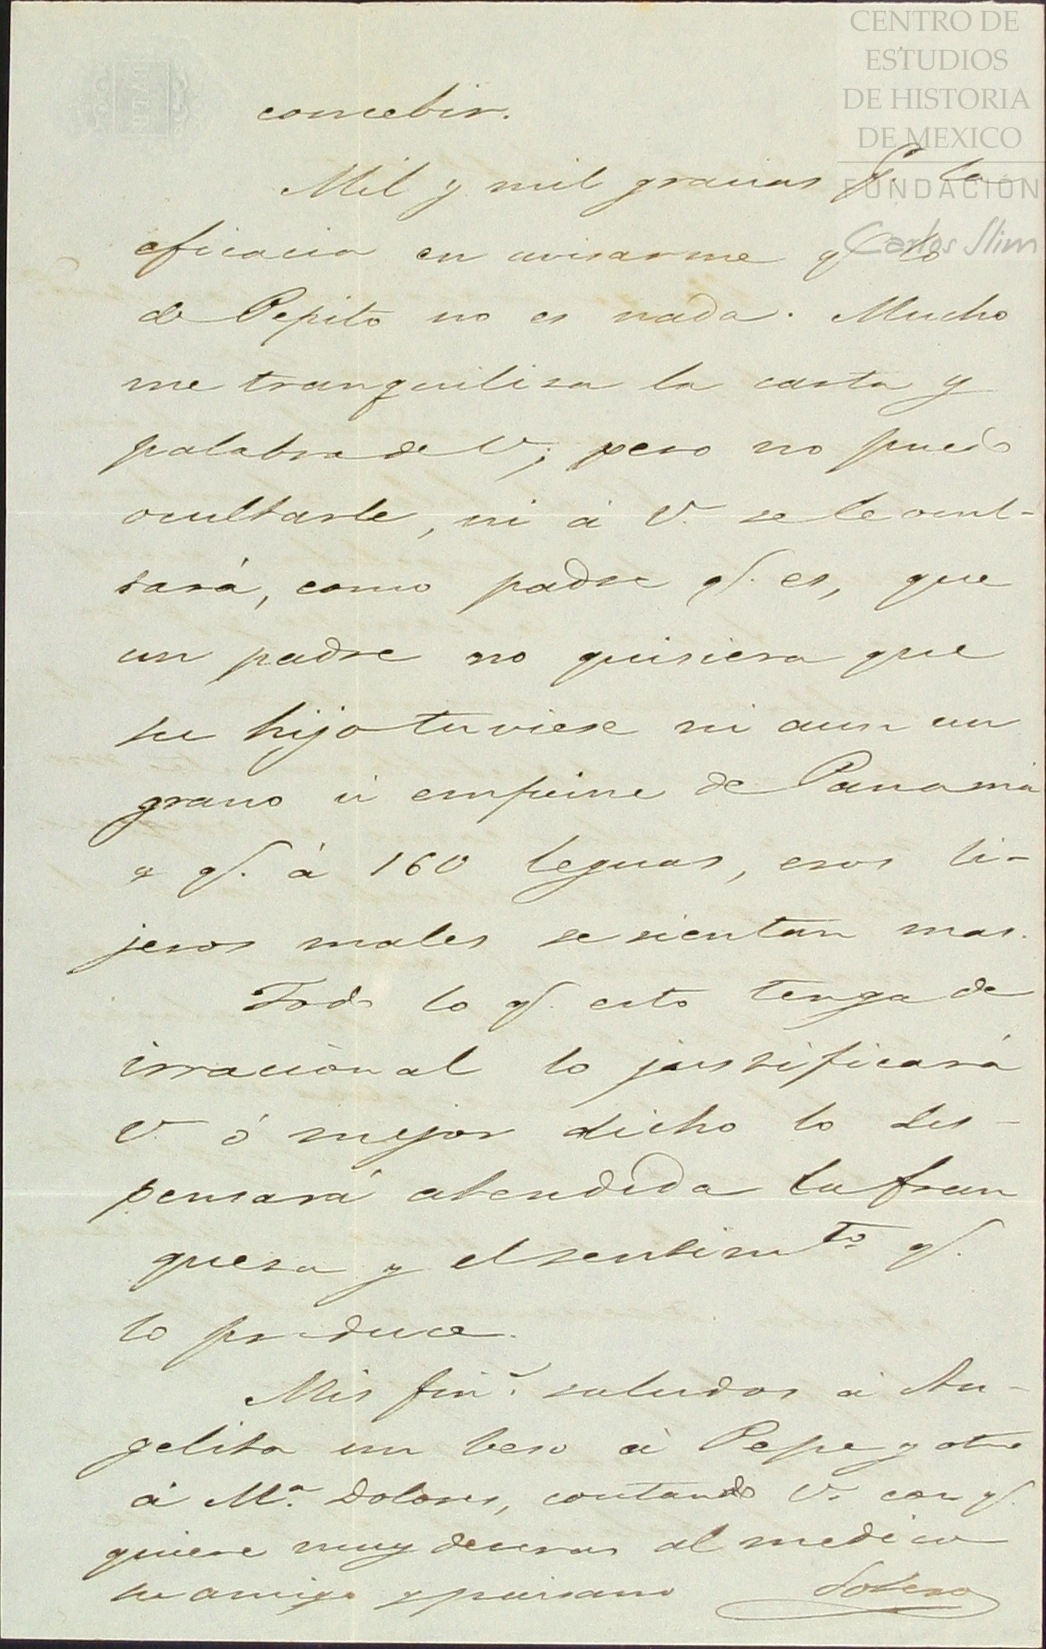 CENTRO DE
ESTUDIOS
DE HISTORIA
DE MEXICO
FUNDACIÓN
Carlos Slim
concebir.
Mil y mil gracias pr. la
eficacia en avisarme q. lo
de Pepito no es nada. Mucho
me tranquilisa la carta y
palabra de V; pero no puedo
ocultarle, ni á V. se le ocul-
tará, como padre q. es, que
un padre no quisiera que
su hijo tuviese ni aun un
grano ú empeine de Panamá
q. á 160 leguas, esos li-
jeros males se sientan mas.
Todo lo q. esto tenga de
irracional lo justificará
V. ó mejor dicho lo dis-
pensará atendida la fran
quesa y el sentimto. q.
lo produce.
Mis fins. saludos á An-
gelita un beso á Pepe y otro
á Ma. Dolores, contando V. con q.
quiere muy deveras al medico
su amigo y paisano